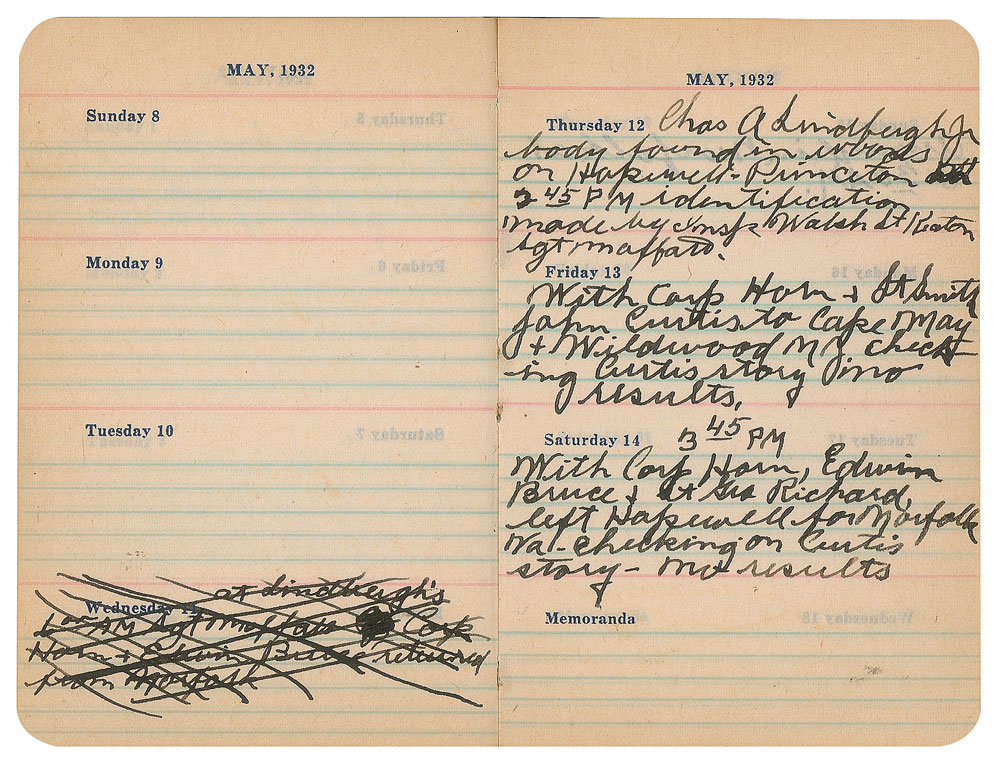 MAY, 1932
Sunday 8
Monday 9
Tuesday 10
Wednesday 11 at Lindbergh's
AM Sgt Moffatt Corp
Horn + Edwin Bruce returned
from Norfolk
MAY, 1932
Thursday 12 Chas A Lindbergh Jr
body found in woods
on Hopewell-Princeton
3 45 PM identification
made by Insp Walsh Lt Keaton
Sgt Moffatt.
Friday 13
With Corp Horn + Lt Smith
John Curtis to Cape May
+ Wildwood NJ check-
ing Curtis story no
results.
Saturday 14 3 45 PM
With Corp Horn, Edwin
Bruce + Lt Geo Richard,
left Hopewell for Norfolk
Va - checking on Curtis
story - no results
Memoranda